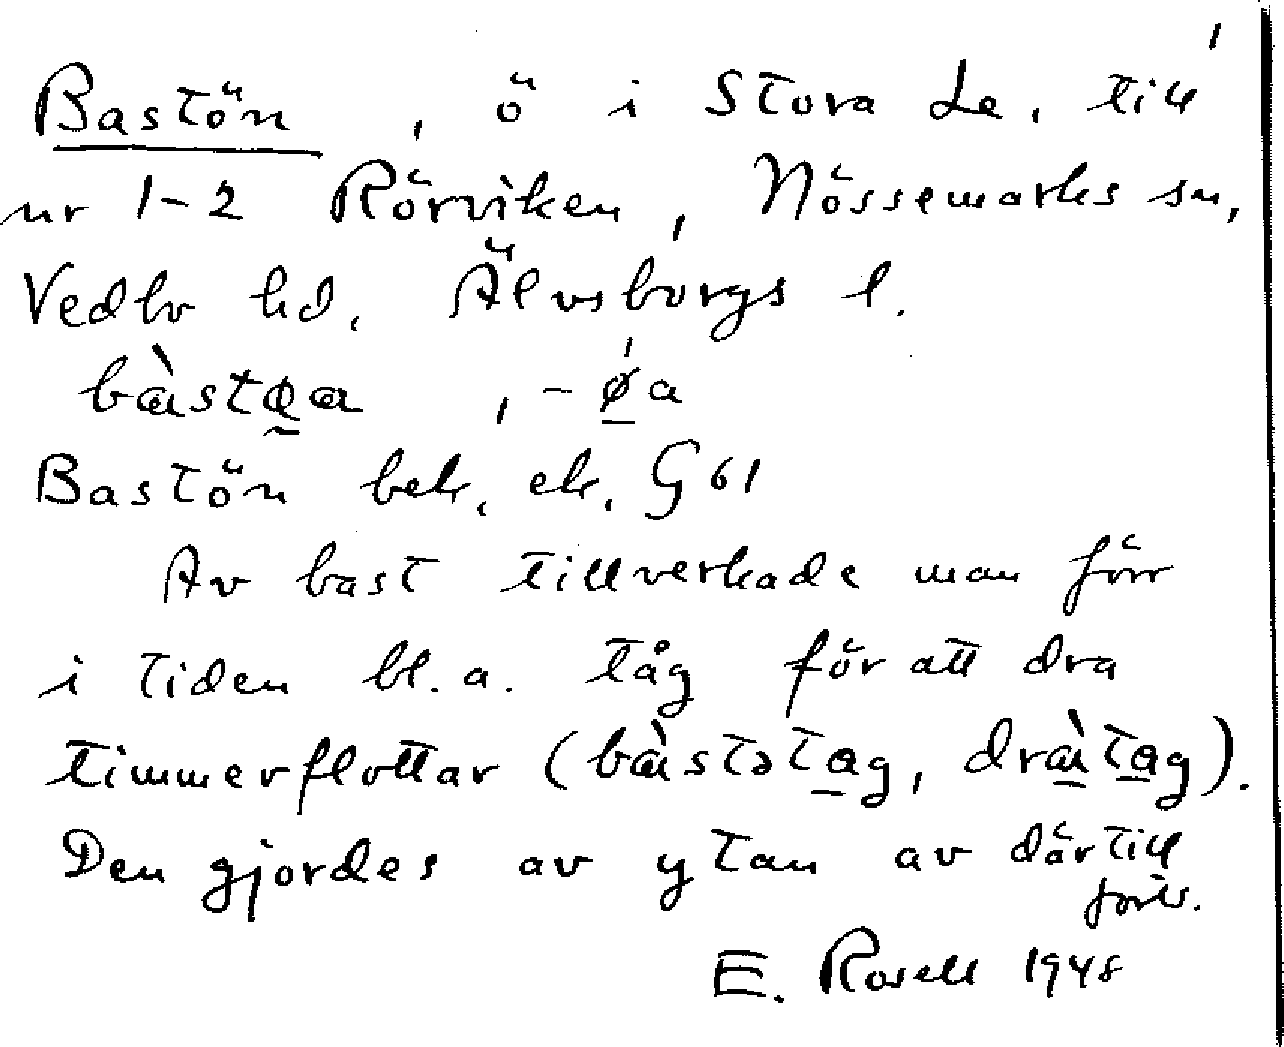 1
Bastön , ö i Stora Le, till
nr 1-2 Rörviken, Nössemarks sn,
Vedbo hd, Älvsborgs l.
, -ǿa
Bastön bek. ek. G 61
Av bast tillverkade man förr
i tiden bl.a. tåg för att dra
timmerflottar (bàstətag, dràtag).
Den gjordes av ytan av därtill
forts.
E. Rosell 1948